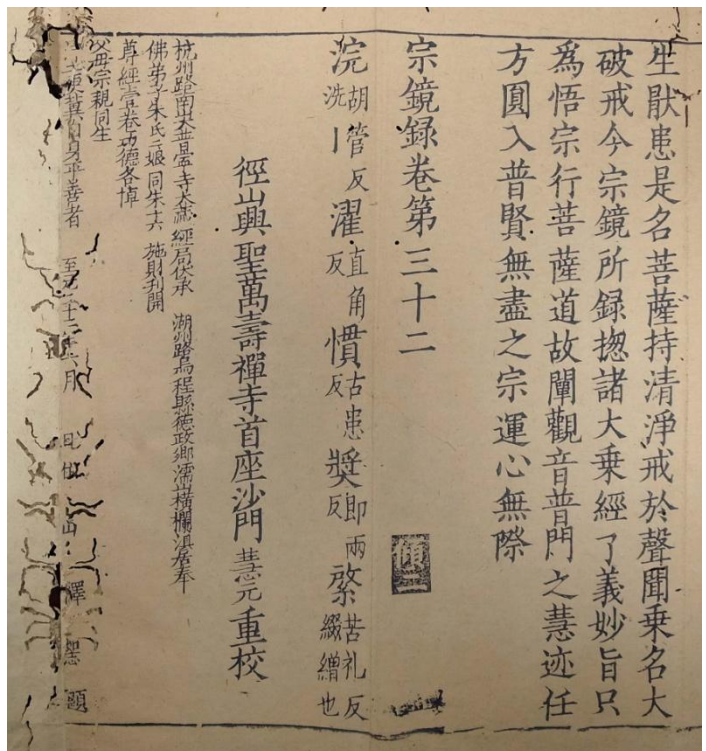 生猒患是名菩薩持清淨戒於聲聞乗名大
破戒今宗鏡所録揔諸大乗經了義妙旨只
為悟宗行菩薩道故闡觀音普門之慧迹任
方圓入普賢無盡之宗運心無際
宗鏡録卷第三十二 傾二
浣胡管反洗丨濯直角反慣古患反奬即兩反綮苦礼反綴繒也
徑山興聖萬壽禪寺首座沙門慧元重校
杭州路南山大普寧寺大藏經局伏承 湖州路烏程縣德政鄉濡山橫欄漊居奉
佛弟子朱氏三娘同朱十六 施財刋開
尊經壹卷功德各悼
父母宗親同生
自身平善者 至元二十 年六月 日 住山釋 題